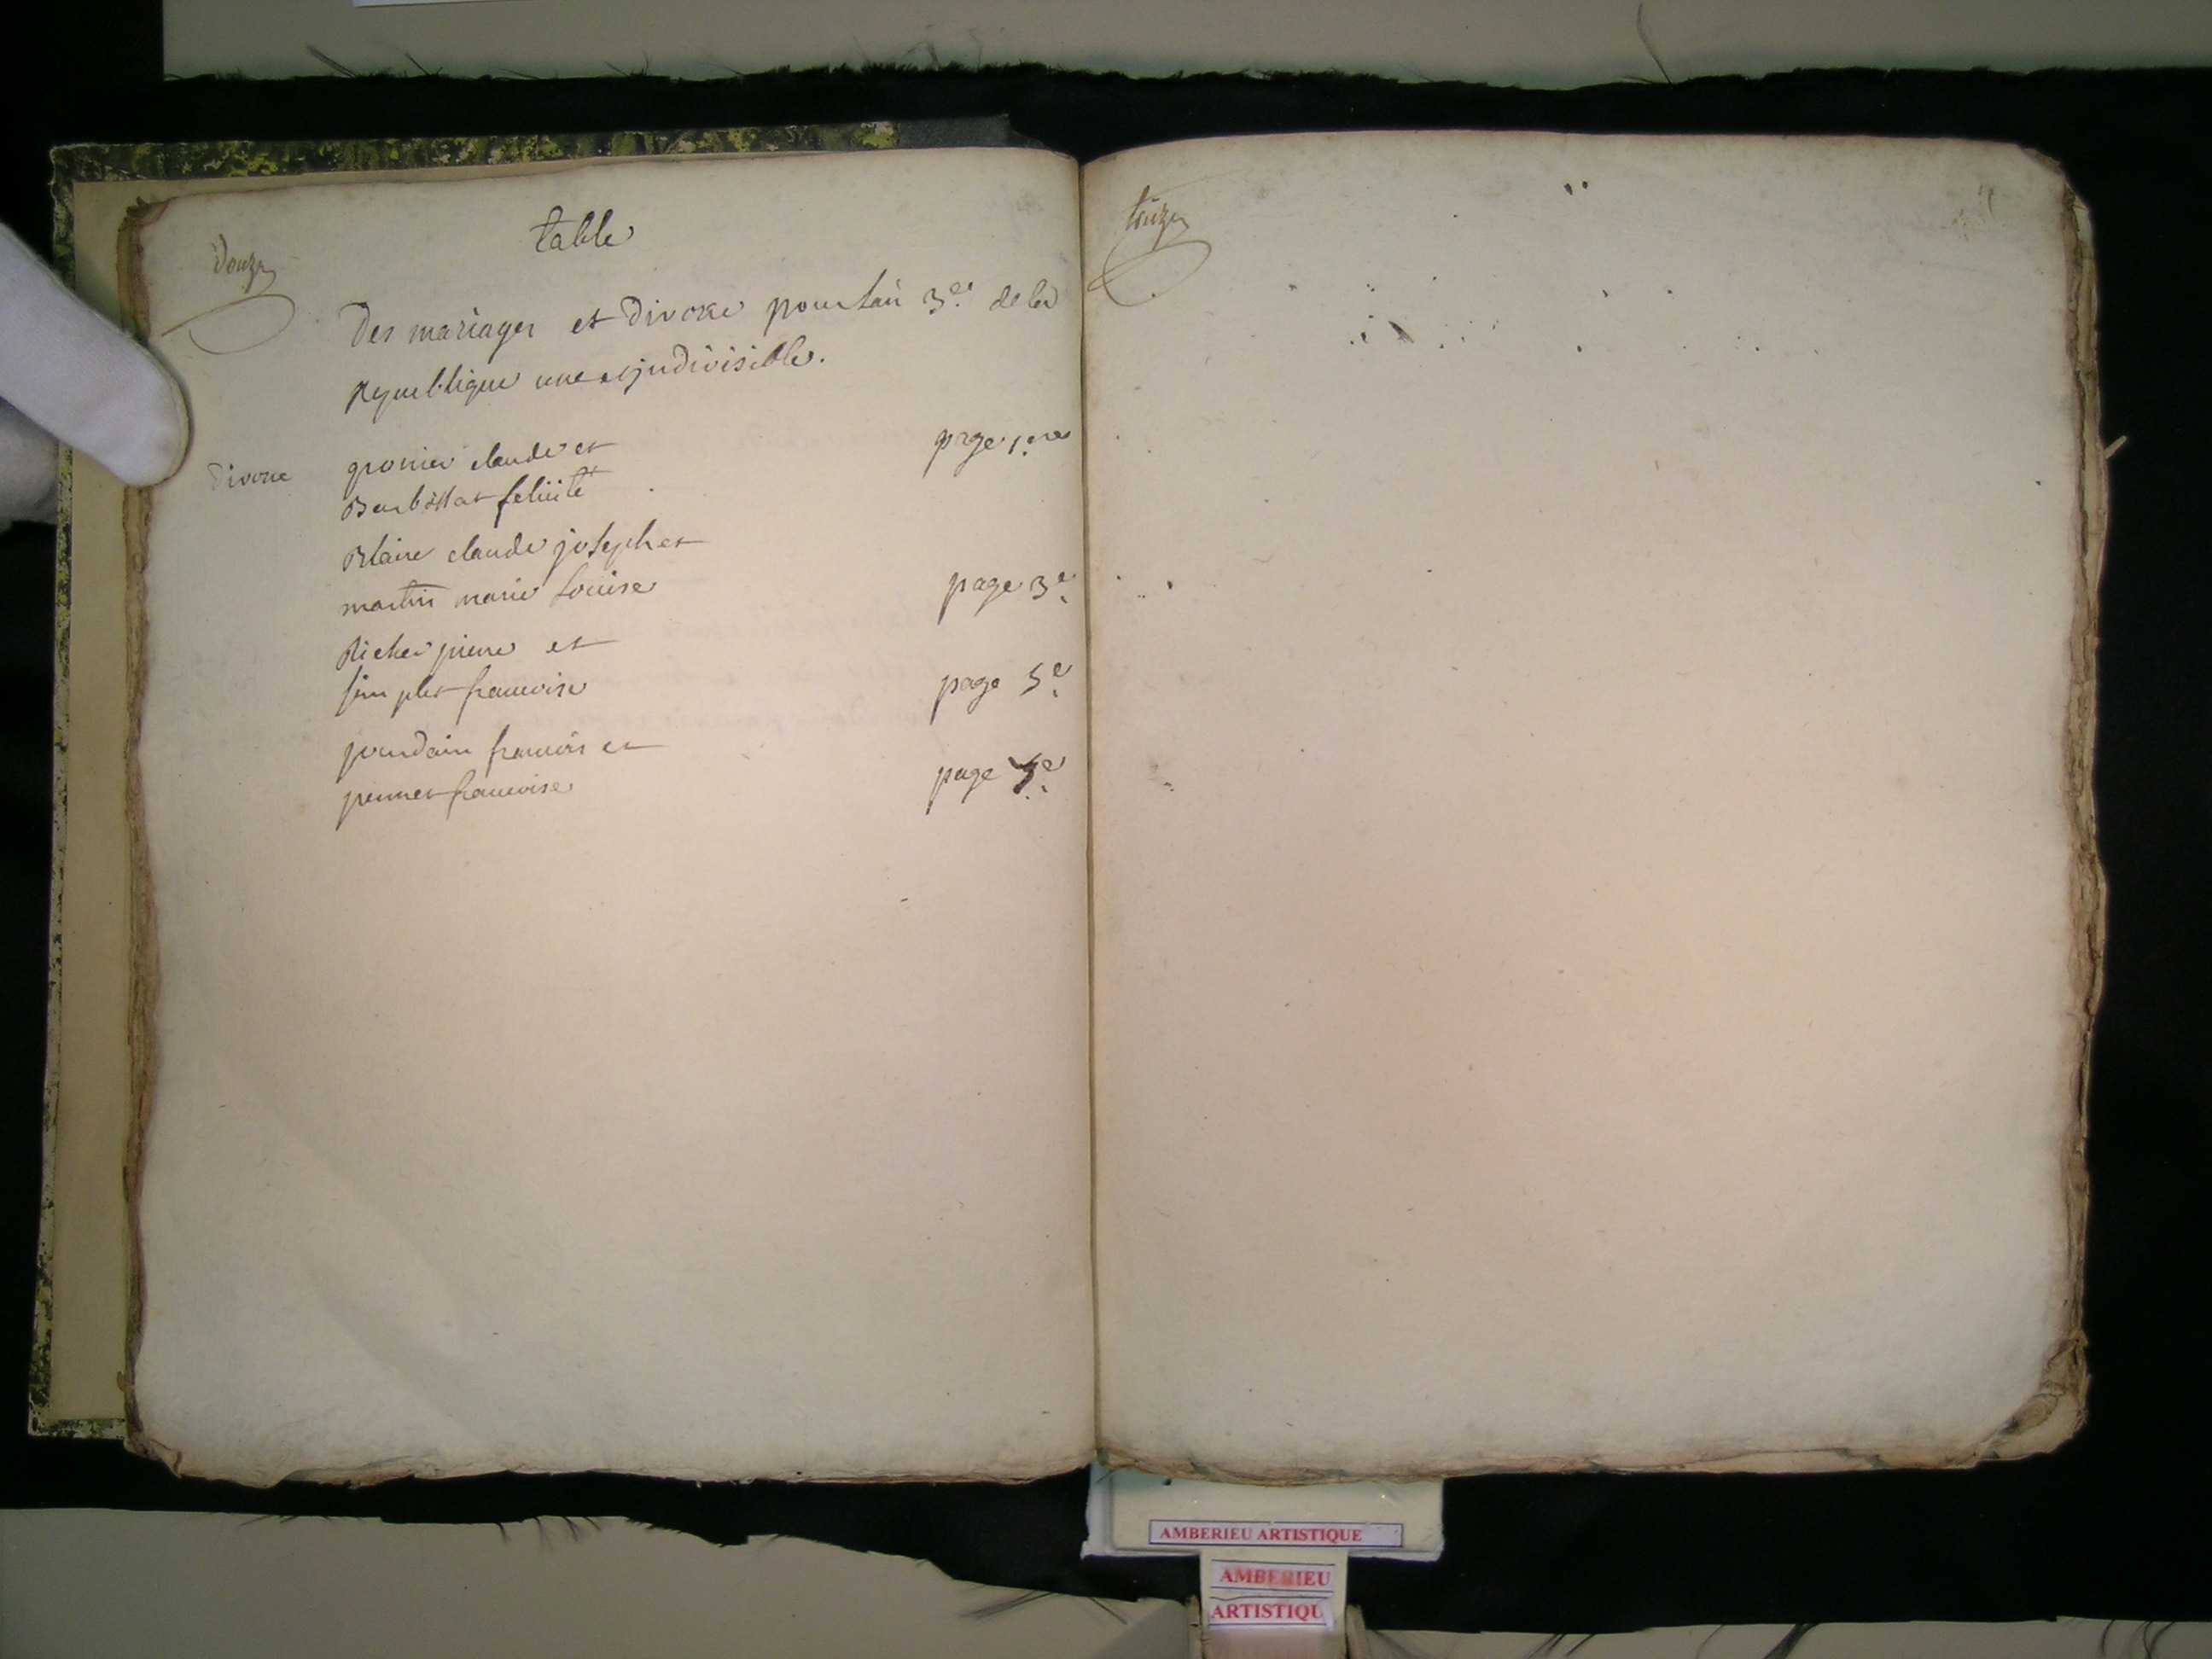 Douze
table
Des mariages et Divorce pour lan 3e. de la
Republique une et jndivisible.
Divorce grosier claude et page 1ere
Barbollat felicité
Blaise claude joseph et
martin marie Louise page 3e
Richer pierre et
simplet francoise page 5e
jourdain francois et
francoise page
treize
AMBERIEU ARTISTIQUE
AMBERIEU
ARTISTIQU